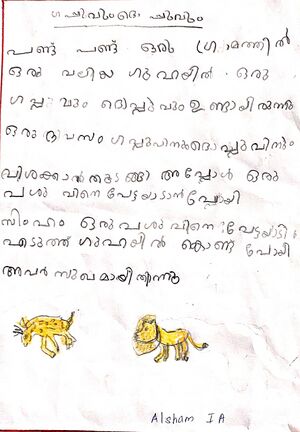 ഗപ്പുവും ദൊപ്പുവും
പണ്ട് പണ്ട് ഒരു ഗ്രാമത്തിൽ
ഒരു വലിയ ഗുഹയിൽ ഒരു
ഗപ്പുവും ദൊപ്പുവും ഉണ്ടായിരുന്നു
ഒരു ദിവസം ഗപ്പുവിനും ദൊപ്പുവിനും
വിശക്കാൻ തുടങ്ങി അപ്പോൾ ഒരു
പശു വിനെ വേട്ടയാടാൻ പോയി
സിംഹം ഒരു പശുവിനെ വേട്ടയാടി
എടുത്ത് ഗുഹയിൽ കൊണ്ട് പോയി
അവർ സുഖമായി തിന്നു
Alsham I A